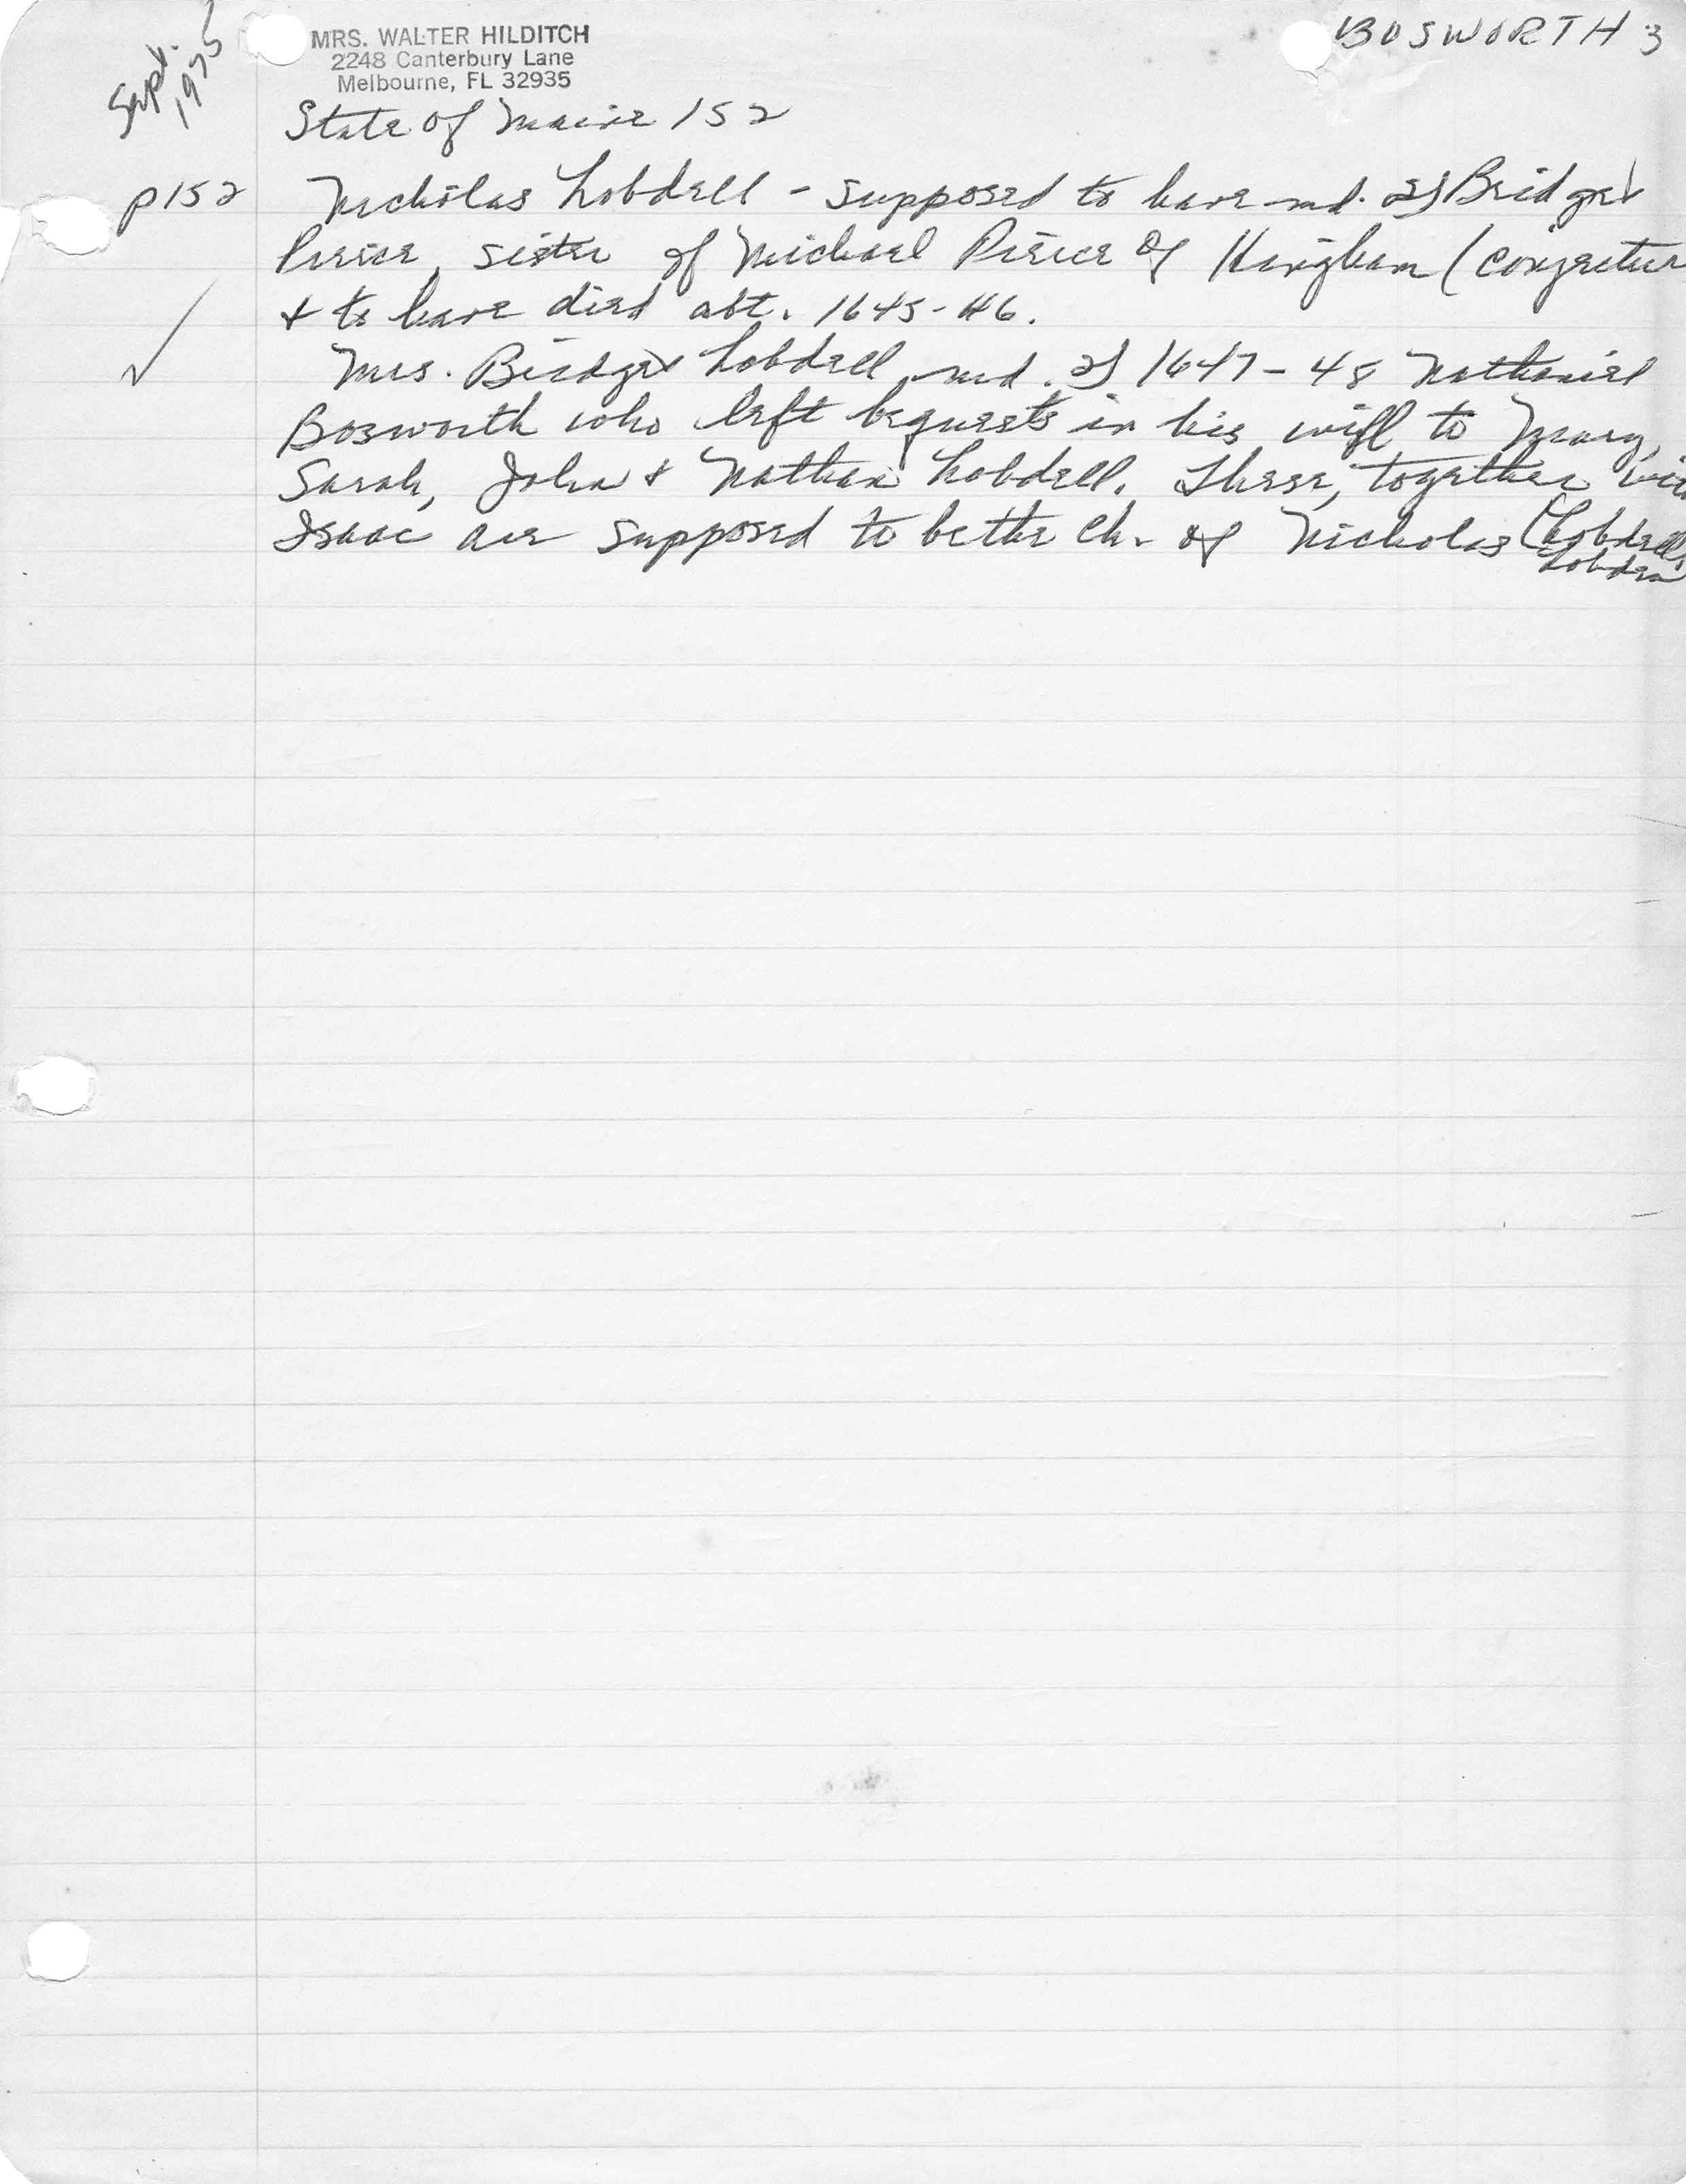 Sept. 1975
MRS. WALTER HILDITCH
2248 Canterbury Lane
Melbourne, FL 32935
BOSWORTH 3
State of Maine 152
p152 Nicholas Lobdell - supposed to have md. 2) Bridget
Pierce, sister of Michael Pierce of Hingham (conjectur
& to have died abt. 1645-46.
Mrs. Bridget Lobdell md. 2) 1647-48 Nathaniel
Bosworth who left bequests in his will to Mary,
Sarah, John & Nathan Lobdell. These, together wit
Isaac are supposed to be the ch. of Nicholas (Lobdell,
Lobden